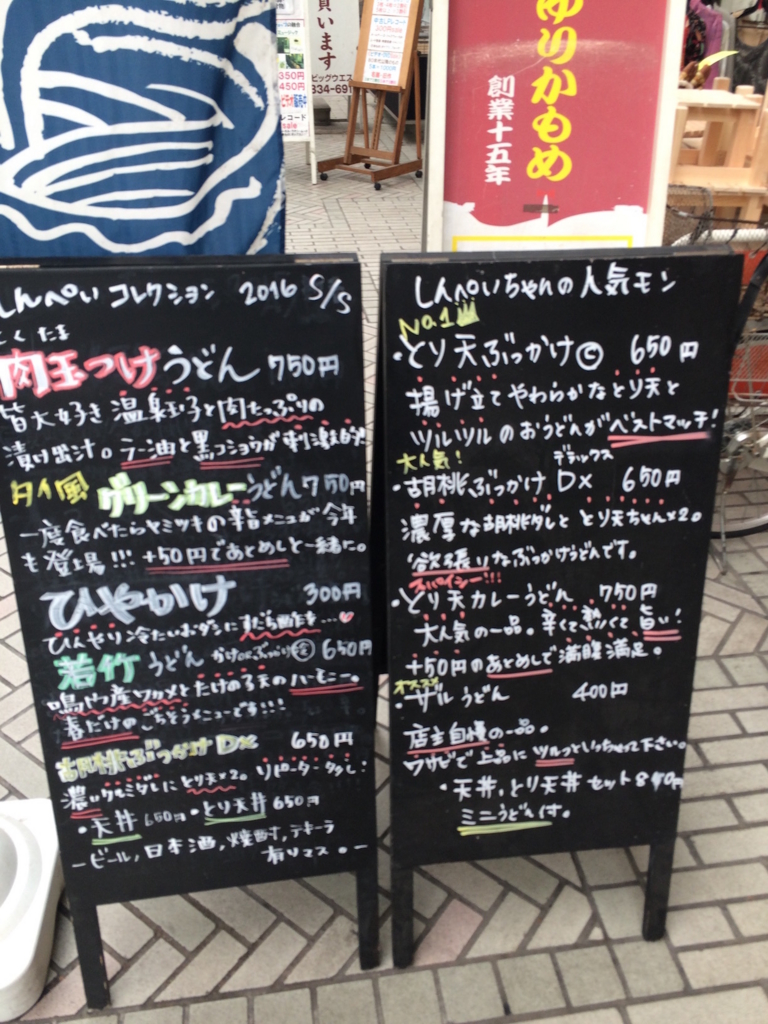 買います
ビッグウエス
334-691
350円
450円
レコード
ゆりかもめ
創業十五年
しんぺい コレクション 2016 S/S
くたま
肉玉つけうどん 750円
皆大好き 温泉玉子と肉たっぷりの
漬け出汁。ラー油と黒コショウが刺激的!
タイ風 グリーンカレーうどん750円
一度食べたらヤミツキの辛旨メニューが今年
も登場!!! +50円であとめしと一緒に。
ひやかけ 300円
ひんやり冷たいおダシにすだち酢を…♡
若竹うどん かけorぶっかけ 650円
鳴門産ワカメとたけの子天のハーモニー。
春だけのごちそうメニューです!!!
胡桃ぶっかけDX 650円
濃いクルミダレにとり天×2。リピーター多し!
・天丼 650円 ・とり天丼 650円
ービール,日本酒,焼酎,テキーラ
有りマス。ー
しんぺいちゃんの人気モン
No1
・とり天ぶっかけⒸ 650円
揚げ立てやわらかなとり天と
ツルツルのおうどんがベストマッチ!
大人気! デラックス
・胡桃ぶっかけ DX 650円
濃厚な胡桃ダレと とり天ちゃん×2。
欲張りなぶっかけうどんです。
スパイシー!!!
・とり天カレーうどん 750円
大人気の一品。辛くて熱くて旨い!
+50円のあとめしで満腹満足。
オススメ
・ザルうどん 400円
店主自慢の一品。
ワサビで上品にツルっといっちゃって下さい。
・天丼,とり天丼 セット840円
ミニうどん付。